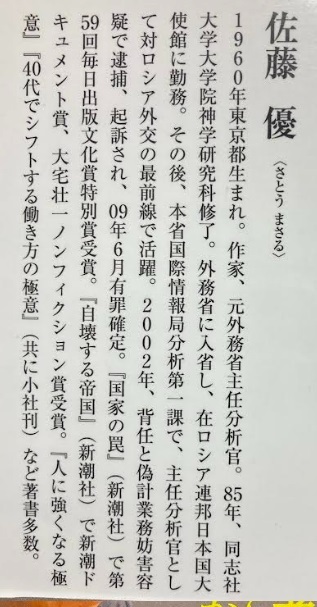 佐藤 優〈さとう まさる〉
1960年東京都生まれ。作家、元外務省主任分析官。85年、同志社
大学大学院神学研究科修了。外務省に入省し、在ロシア連邦日本国大
使館に勤務。その後、本省国際情報局分析第一課で、主任分析官とし
て対ロシア外交の最前線で活躍。2002年、背任と偽計業務妨害容
疑で逮捕、起訴され、09年6月有罪確定。『国家の罠』（新潮社）で第
59回毎日出版文化賞特別賞受賞。『自壊する帝国』（新潮社）で新潮ド
キュメント賞、大宅壮一ノンフィクション賞受賞。『人に強くなる極
意』『40代でシフトする働き方の極意』（共に小社刊）など著書多数。